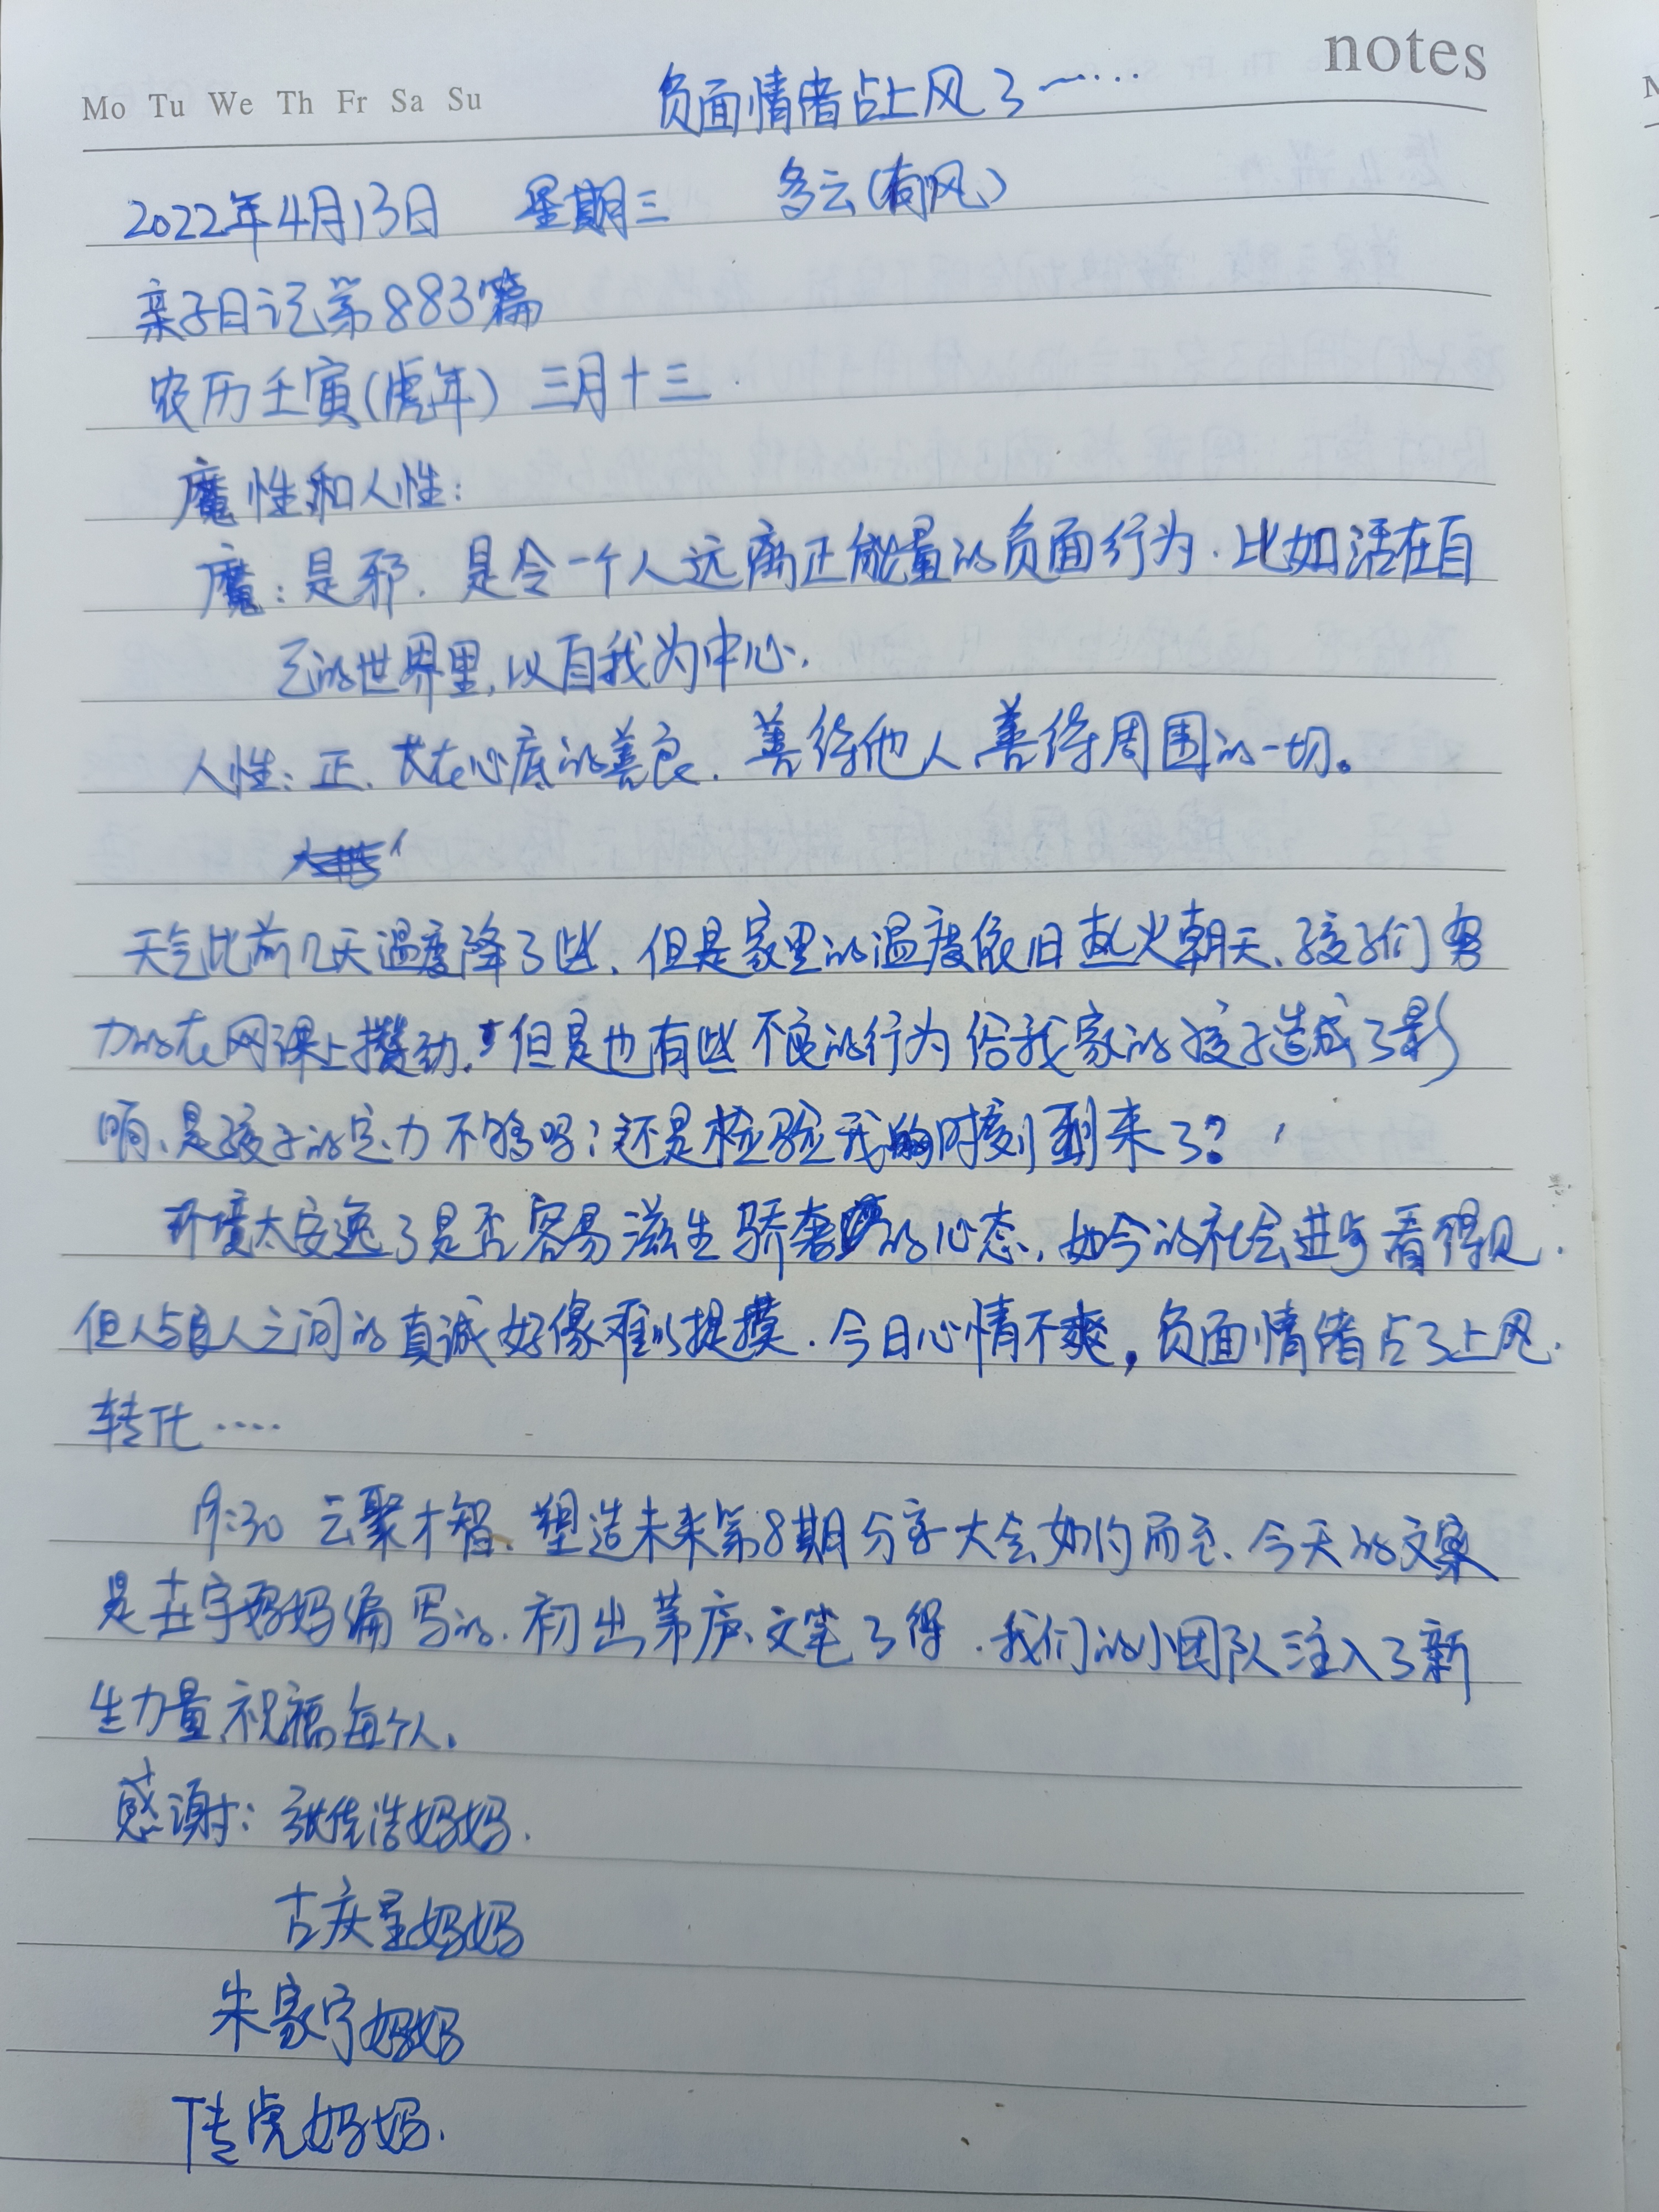 notes
Mo Tu We Th Fr Sa Su 负面情绪占上风了一……
2022年4月13日 星期三 多云(有风)
亲子日记第883篇
农历壬寅(虎年) 三月十三
魔性和人性:
魔:是邪.是令一个人远离正能量的负面行为.比如活在自
己的世界里,以自我为中心.
人性:正.长在心底的善良.善待他人善待周围的一切。
天气比前几天温度降了些.但是家里的温度依旧热火朝天、孩子们努
力的在网课上攒动.但是也有些不良的行为给我家的孩子造成了影
响、是孩子的定力不够吗?还是检验我的时刻到来了?
环境太安逸了是否容易滋生骄奢的心态.如今的社会进步看得见.
但人与人之间的真诚好像难以捉摸.今日心情不爽,负面情绪占了上风.
转化……
19:30 云聚才智、塑造未来第8期分享大会如约而至、今天的文案
是宇妈妈编写的.初出茅庐、文笔了得.我们的小团队注入了新
生力量,祝福每个人.
感谢:张佳浩妈妈.
古庆星妈妈
朱家宁妈妈
传虎妈妈.